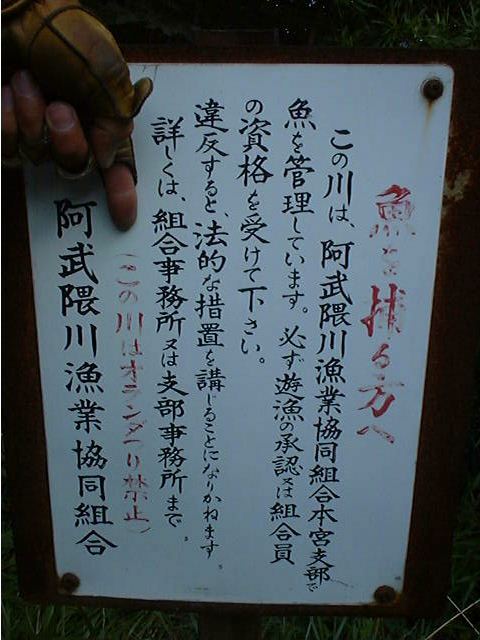 魚を捕る方へ
この川は、阿武隈川漁業協同組合本宮支部で
魚を管理しています。必ず遊漁の承認又は組合員
の資格を受けて下さい。
違反すると、法的な措置を講じることになりかねます。
詳しくは、組合事務所又は支部事務所まで。
(この川はオランダつり禁止)
阿武隈川漁業協同組合